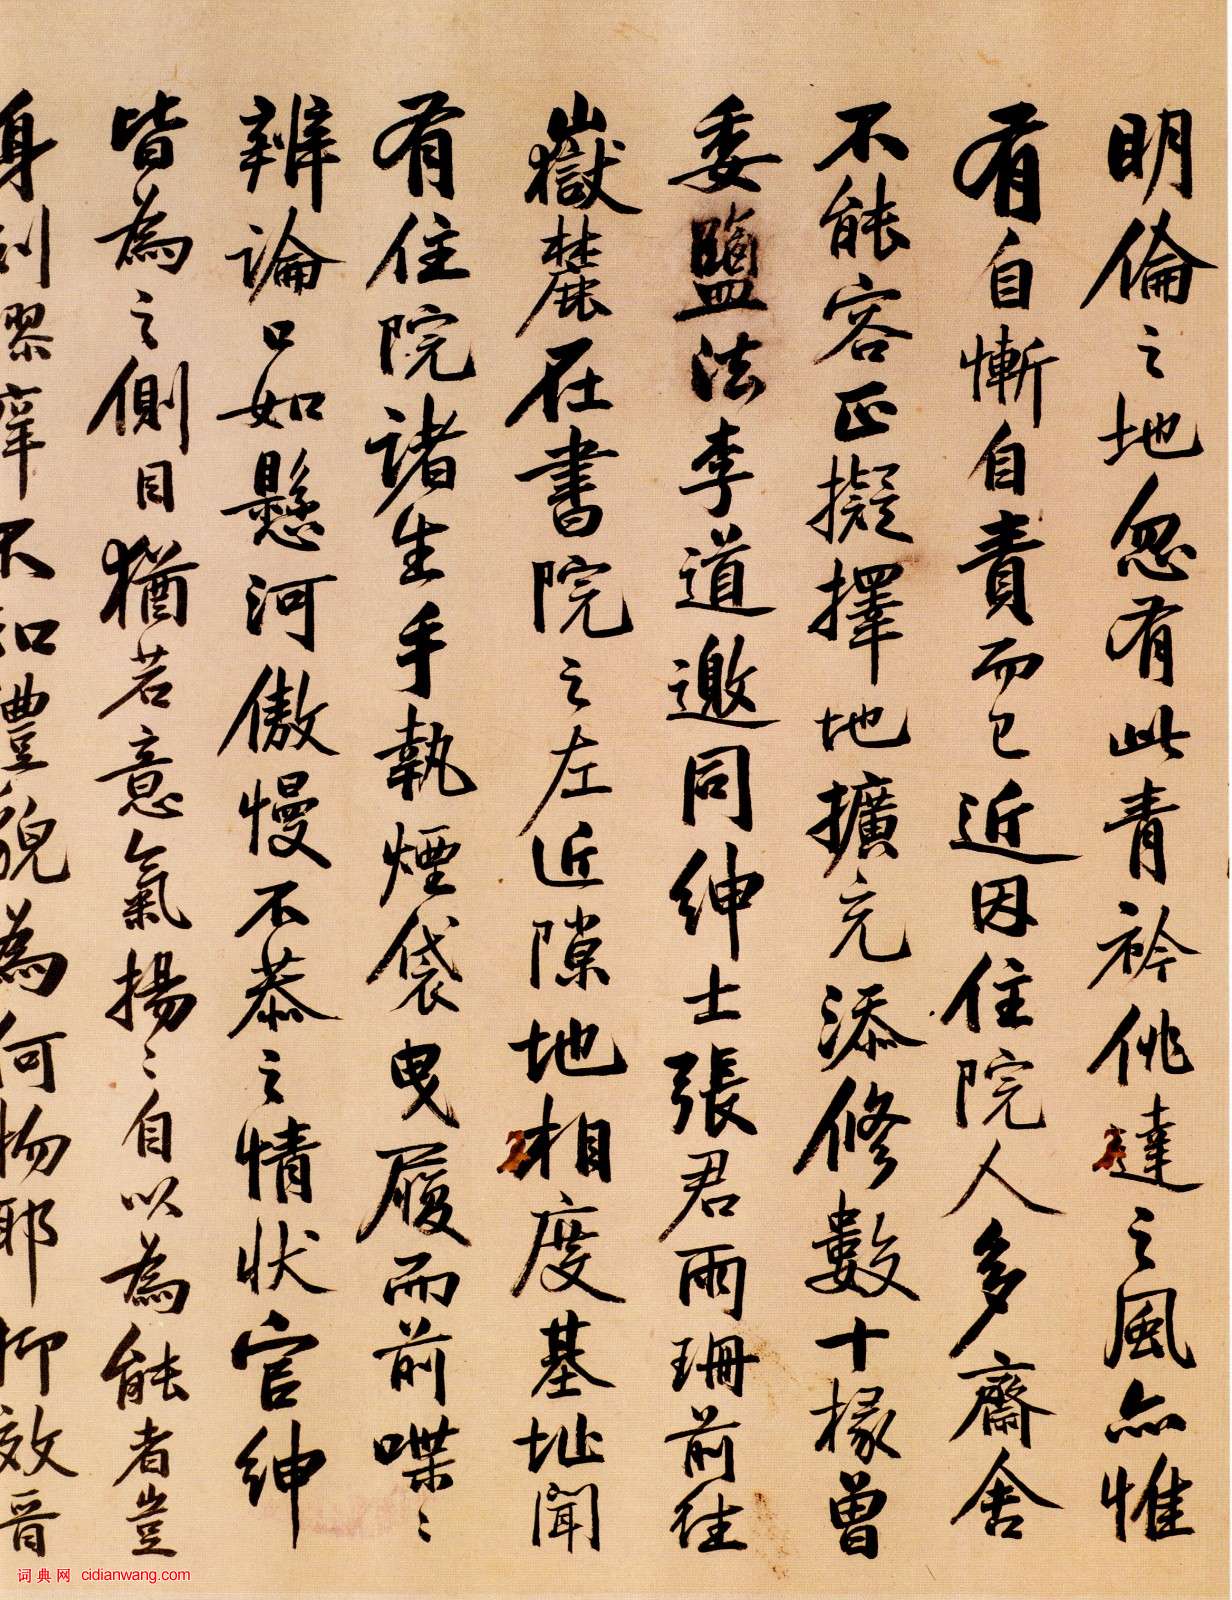 明倫之地忽有此青衿佻達之風亦惟
有自慚自責而已近因住院人多齋舍
不能容正擬擇地擴充添修數十椽曾
委鹽法李道邀同紳士張君雨珊前往
嶽麓在書院之左近隙地相度基址聞
有住院諸生手執煙袋曳履而前喋〻
辨論口如懸河傲慢不恭之情状官紳
皆為之側目猶若意氣揚〻自以為能者豈
身列膠庠不知禮貌為何物耶抑效晉
词典网 cidianwang.com